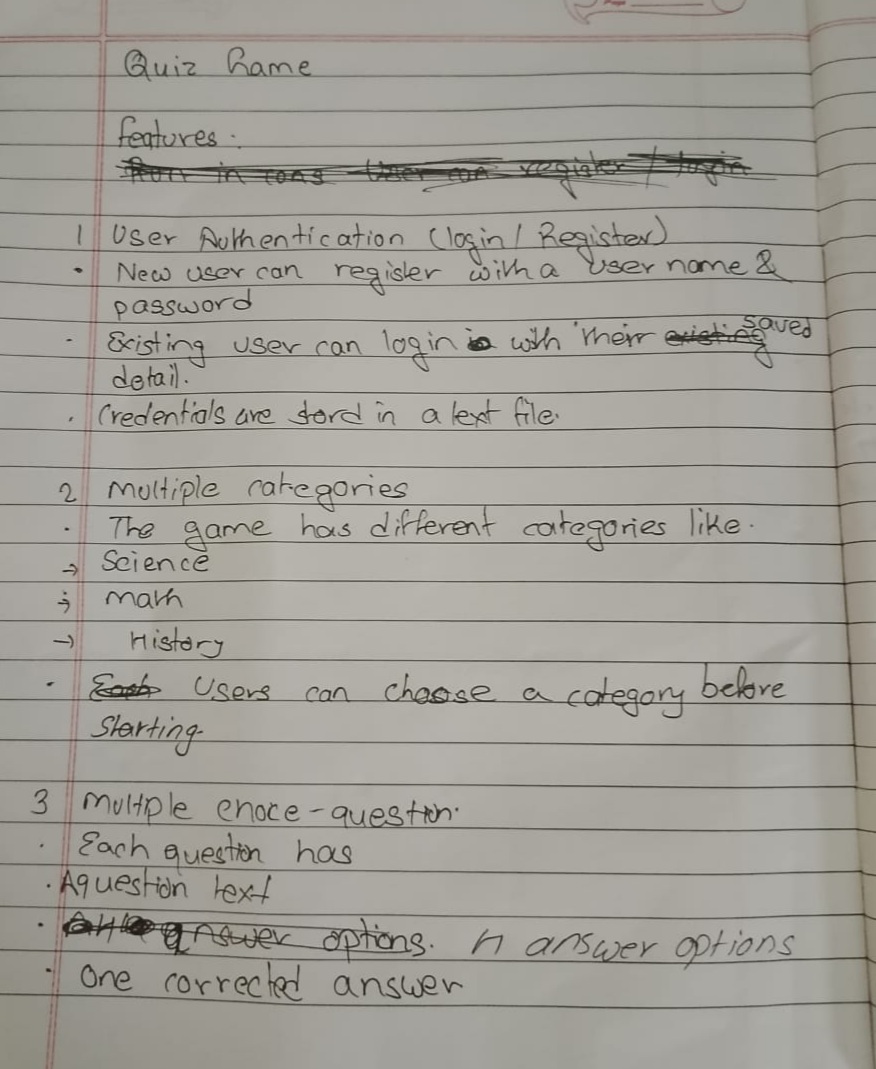 Quiz Game
features :
1 User Authentication (login / Register)
• New user can register with a user name &
password
· Existing user can login with their saved
detail.
. Credentials are stord in a text file.
2 Multiple categories
· The game has different categories like.
→ Science
→ math
→ History
· Users can choose a category before
starting.
3 multple choce - question.
· Each question has
· A question text
· n answer options
· one corrected answer